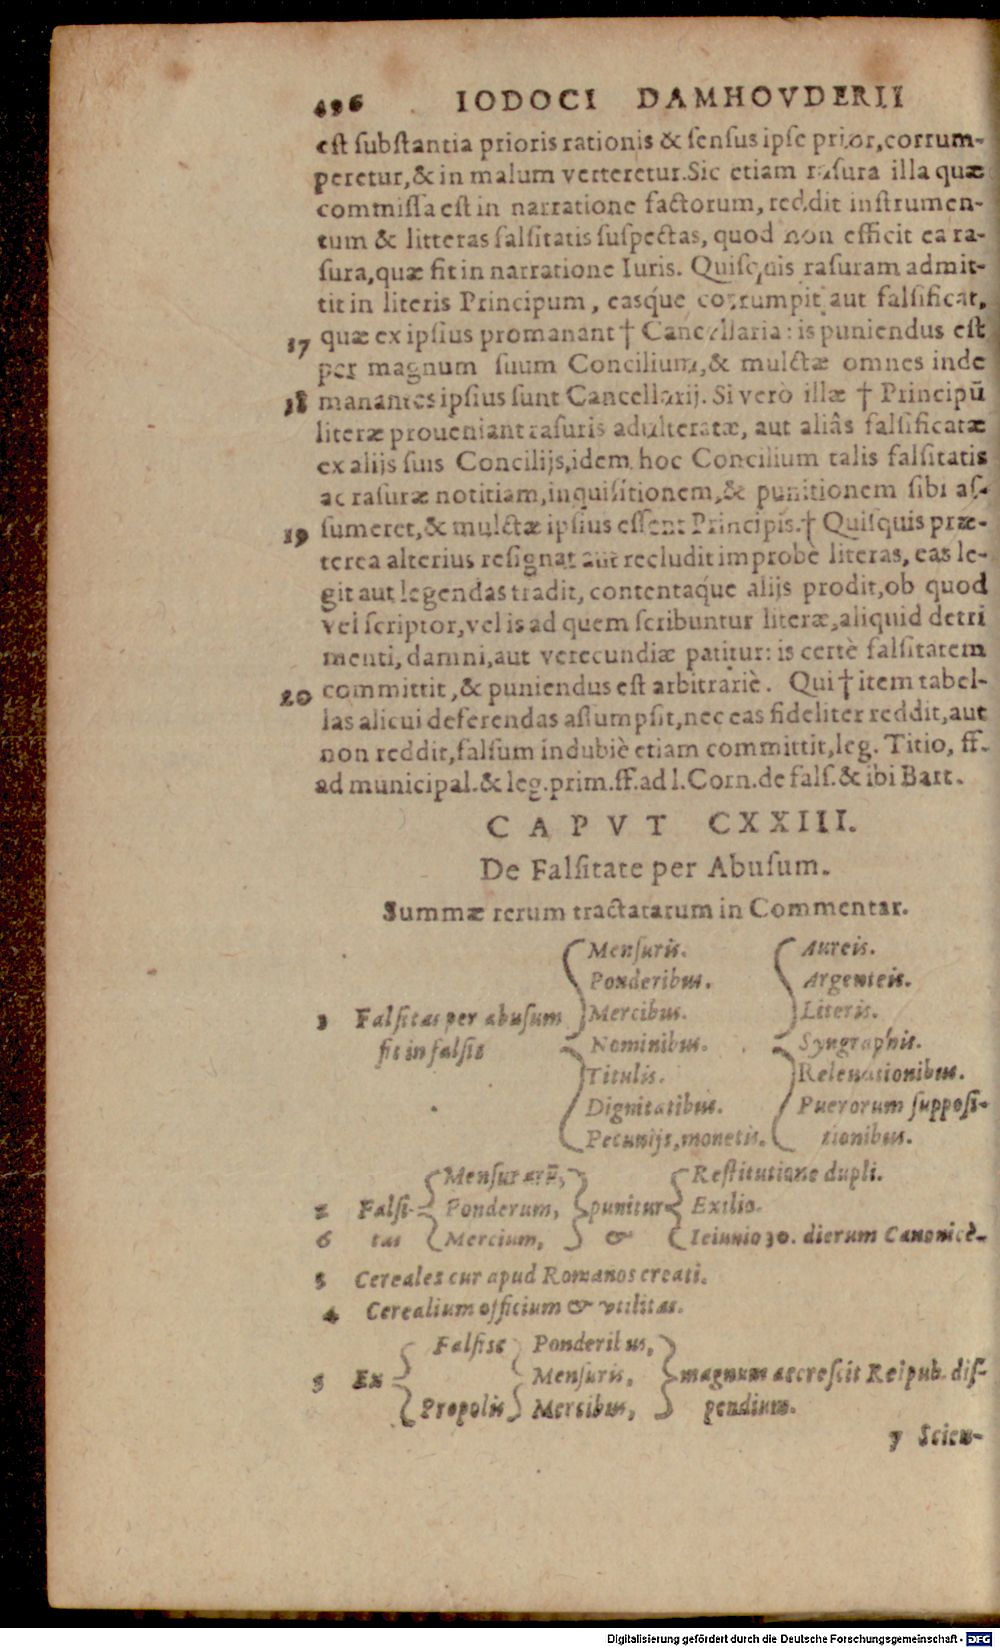 496 IODOCI DAMHOVDERII
est substantia prioris rationis & sensus ipse prior, corrum-
peretur, & in malum verteretur. Sic etiam rasura illa quæ
commissa est in narratione factorum, reddit instrumen-
tum & litteras falsitatis suspectas, quod non efficit ea ra-
sura, quæ fit in narratione Iuris. Quisquis rasuram admit-
tit in literis Principum, easq́ue corrumpit aut falsificat,
17 quæ ex ipsius promanant † Cancellaria: is puniendus est
per magnum suum Concilium, & mulctæ omnes inde
18 manantes ipsius sunt Cancellarij. Si verò illæ † Principũ
literæ proueniant rasuris adulteratæ, aut aliâs falsificatæ
ex alijs suis Concilijs, idem hoc Concilium talis falsitatis
ac rasuræ notitiam, inquisitionem, & punitionem sibi as-
19 sumeret, & mulctæ ipsius essent Principis. † Quisquis præ-
terea alterius resignat aut recludit improbè literas, eas le-
git aut legendas tradit, contentaq́ue alijs prodit, ob quod
vel scriptor, vel is ad quem scribuntur literæ, aliquid detri
menti, damni, aut verecundiæ patitur: is certè falsitatem
20 committit, & puniendus est arbitrariè. Qui † item tabel-
las alicui deferendas assumpsit, nec eas fideliter reddit, aut
non reddit, falsum indubiè etiam committit, leg. Titio, ff.
ad municipal. & leg. prim. ff. ad l. Corn. de fals. & ibi Bart.
CAPVT CXXIII.
De Falsitate per Abusum.
Summæ rerum tractatarum in Commentar.
1 Falsitas per abusum
fit in falsis
Mensuris.
Ponderibus.
Mercibus.
Nominibus.
Titulis.
Dignitatibus.
Pecunijs, monetis.
Aureis.
Argenteis.
Literis.
Syngraphis.
Releuationibus.
Puerorum supposi-
tionibus.
2 Falsi-
6 tas
Mensurarũ,
Ponderum,
Mercium,
punitur
&
Restitutione dupli.
Exilio.
Ieiunio 30. dierum Canonicè.
3 Cereales cur apud Romanos creati.
4 Cerealium officium & vtilitas.
5 Ex
Falsis
Propolis
Ponderibus,
Mensuris,
Mercibus,
magnum accrescit Reipub. dis-
pendium.
7 Scien-
Digitalisierung gefördert durch die Deutsche Forschungsgemeinschaft - DFG